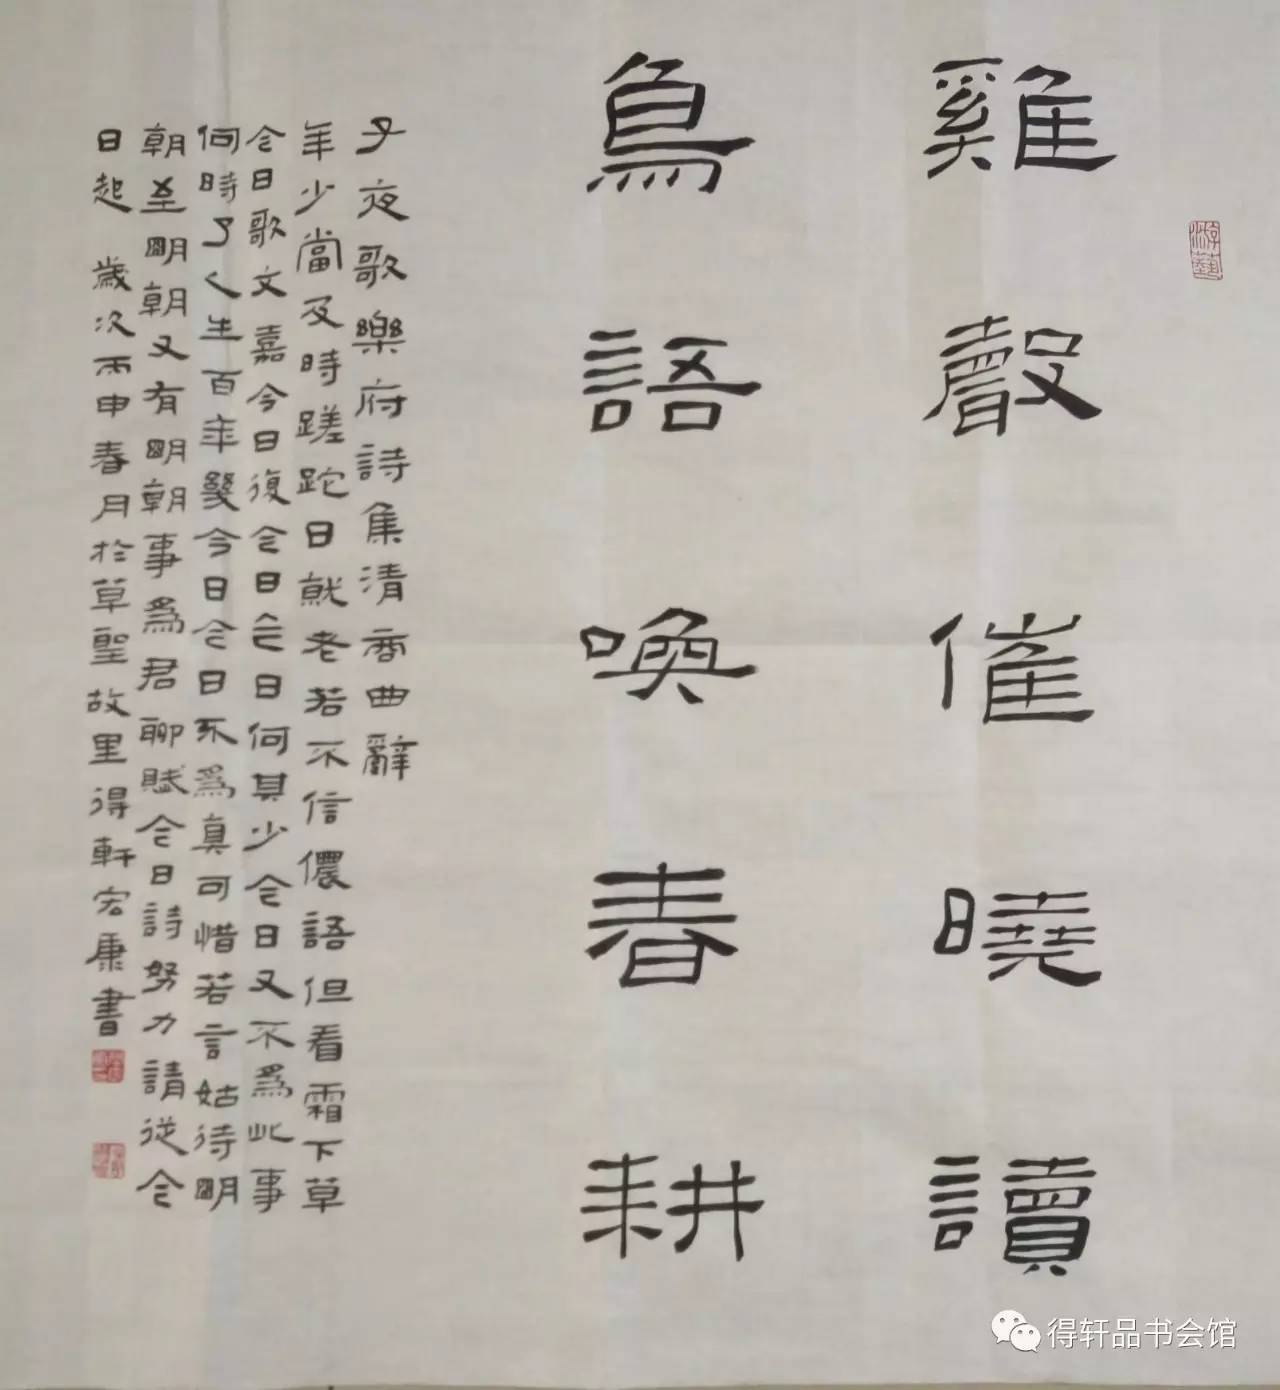 雞聲催曉讀
鳥語喚春耕
子夜歌樂府詩集清商曲辭
年少當及時蹉跎日就老若不信儂語但看霜下草
今日歌文嘉今日復今日今日何其少今日又不為此事
何時了人生百年幾今日今日不為真可惜若言姑待明
朝至明朝又有明朝事為君聊賦今日詩努力請從今
日起 歲次丙申春月於草聖故里得軒宏康書
游藝
得轩品书会馆